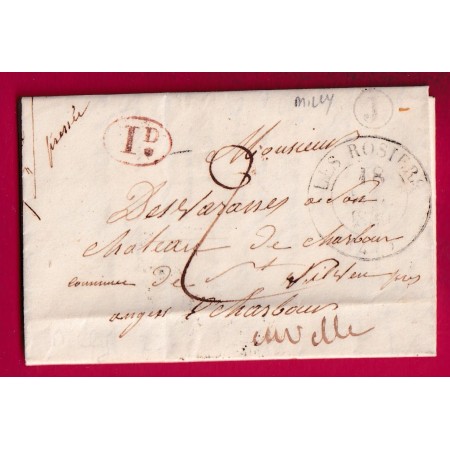 MILLY
J
pressée
1D.
LES ROSIERS
18
2
Monsieur
Desvarannes a son
château de charbour
commune de St près
angers charbour
en ville